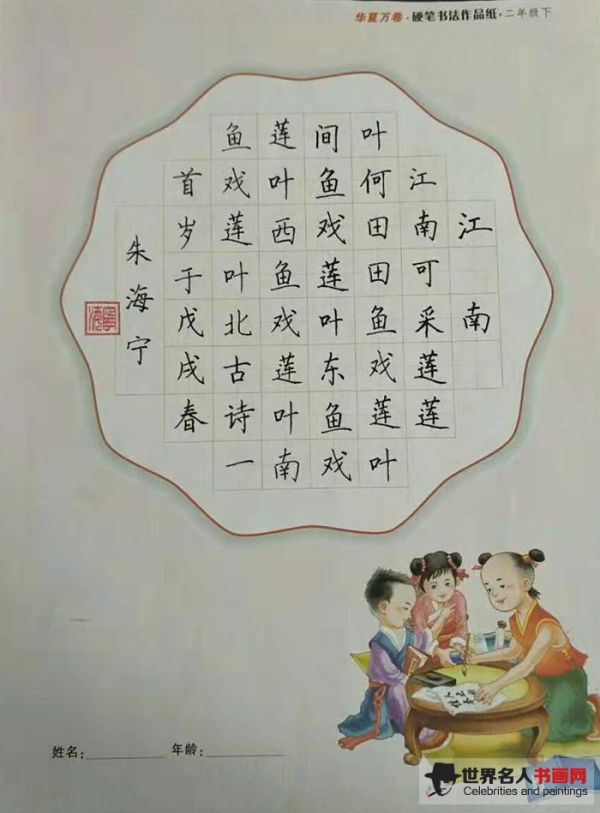 华夏万卷·硬笔书法作品纸·二年级下
江南
江南可采莲莲
叶何田田鱼戏莲叶
间鱼戏莲叶东鱼戏
莲叶西鱼戏莲叶南
鱼戏莲叶北古诗一
首岁于戊戌春
朱海宁
姓名:
年龄:
世界名人书画网
Celebrities and paintings